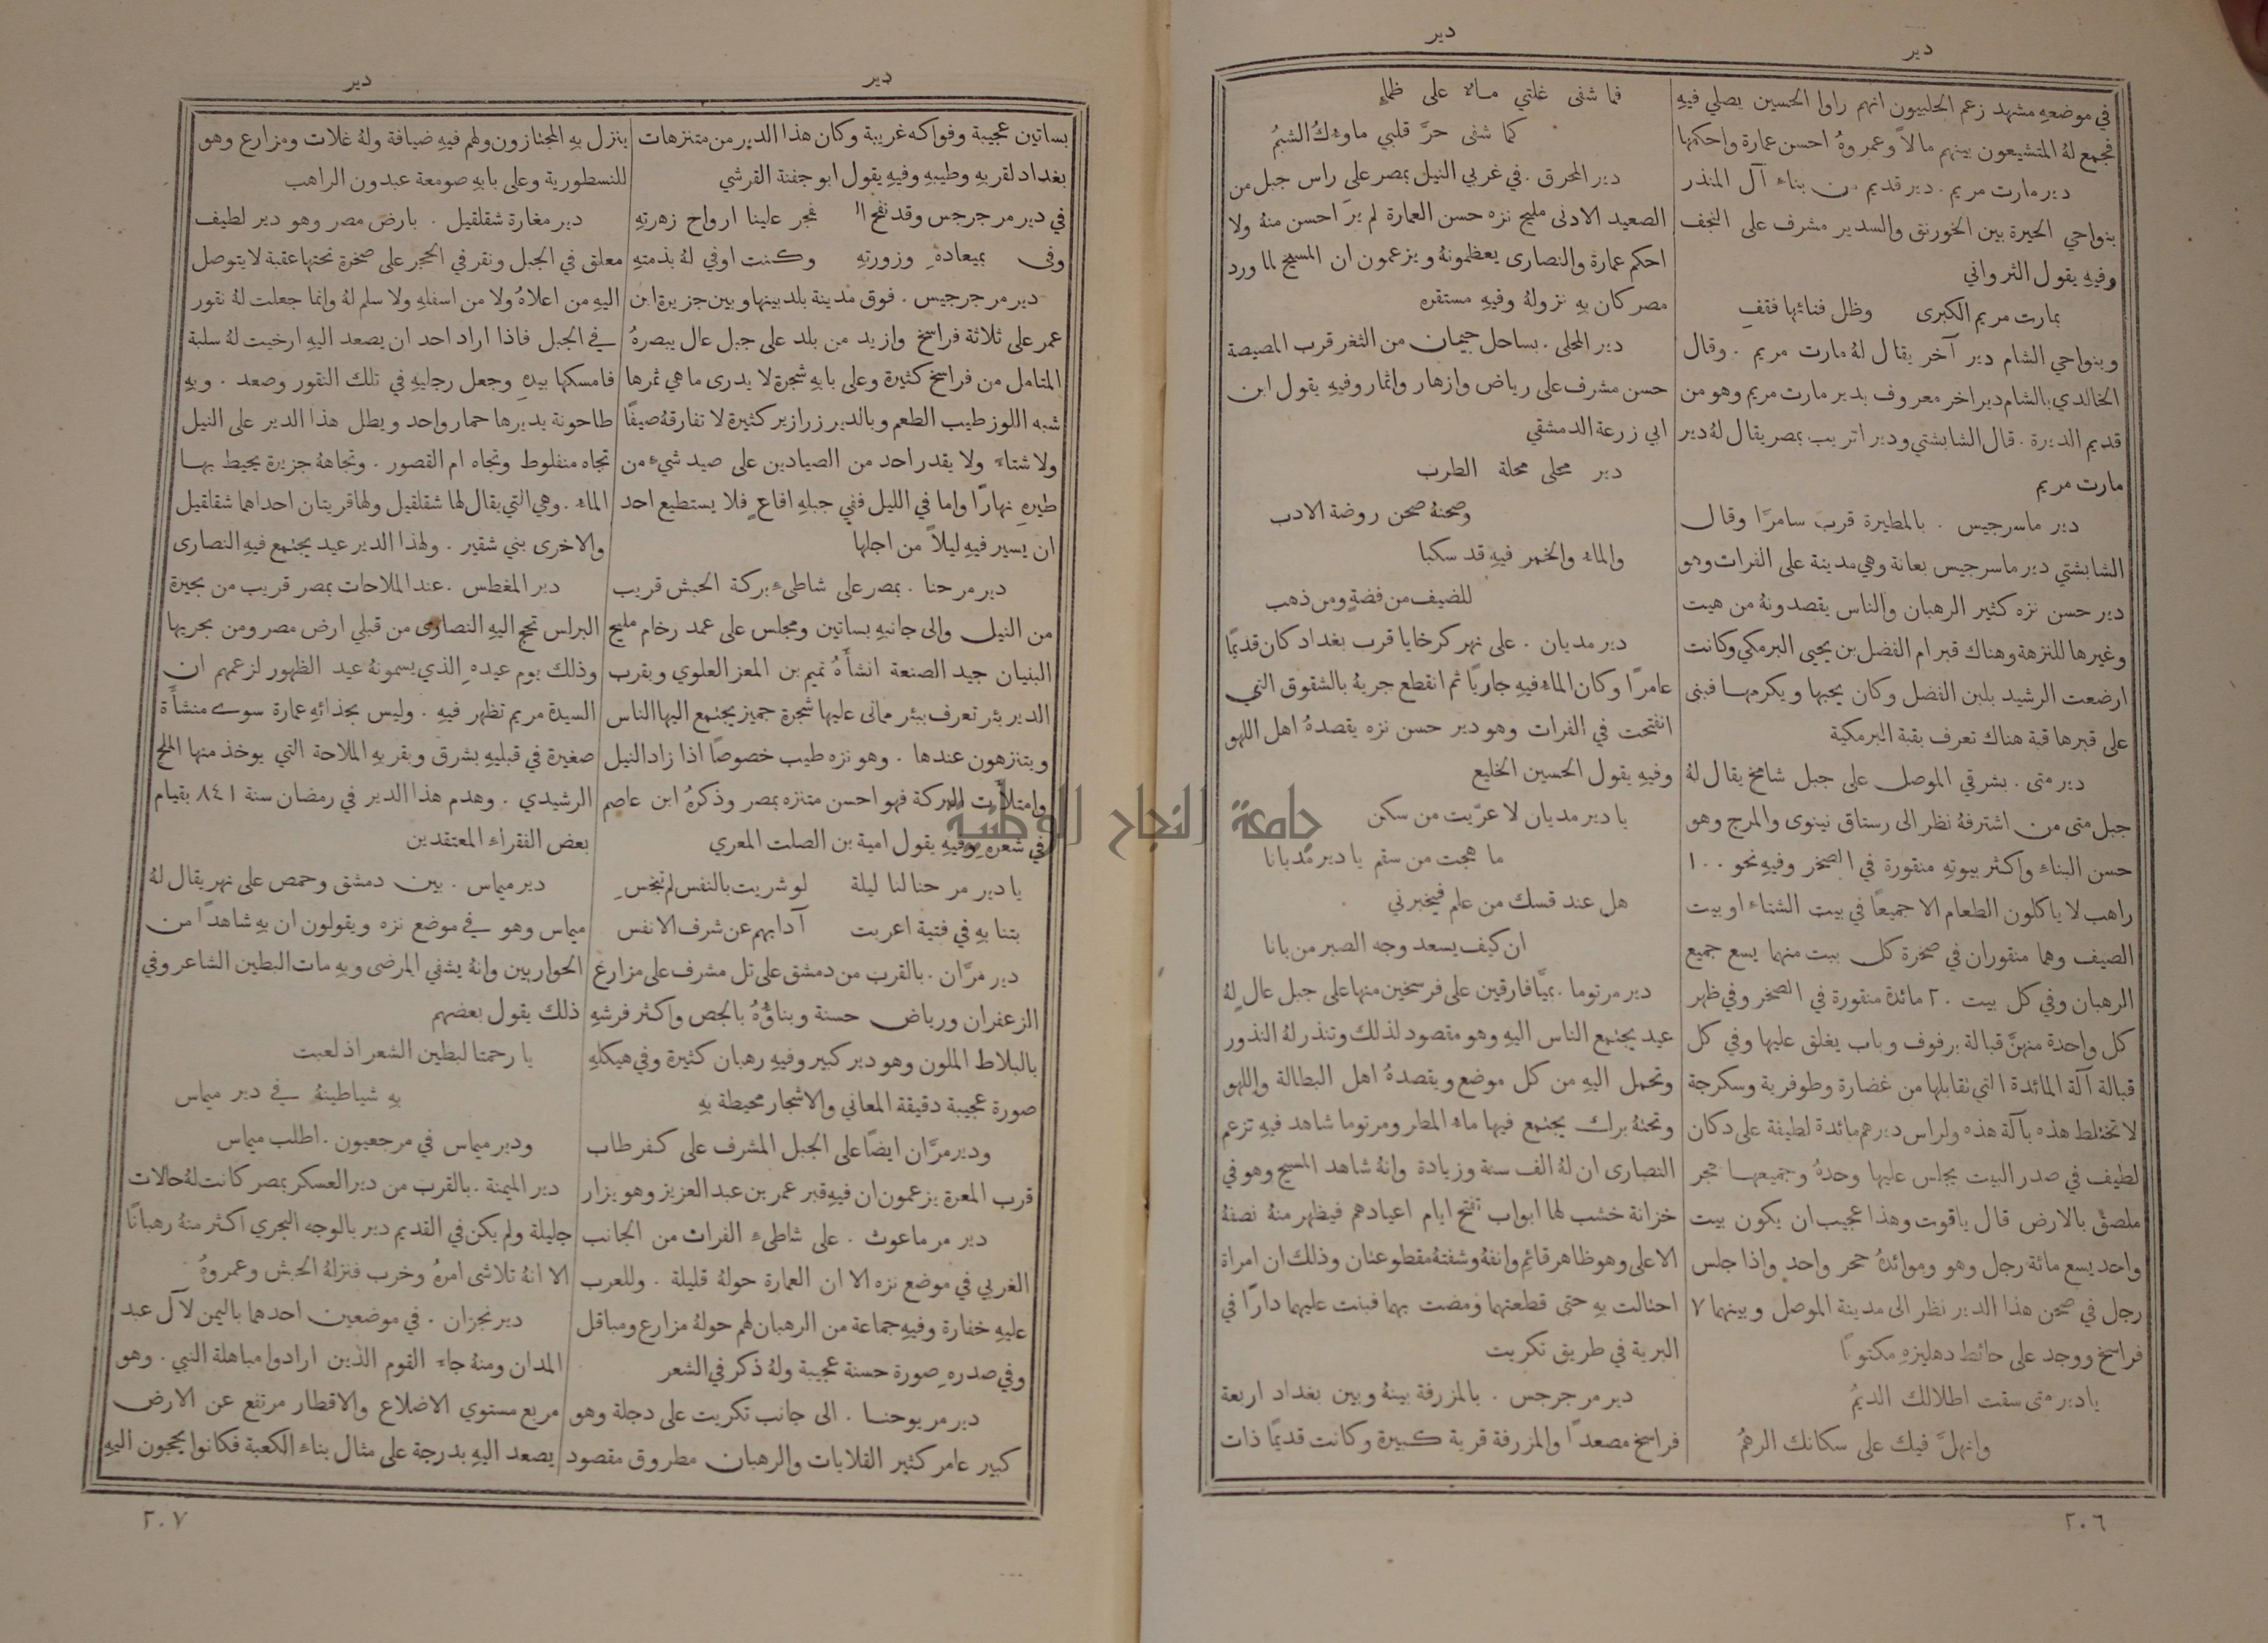 دير
دير
في موضعهِ مشهد زعم الحلبيون انهم راوا الحسين يصلي فيهِ
فجمع لهُ المتشيعون بينهم مالاً وعمروهُ احسن عمارة واحكمها
دير مارت مريم . دير قديم من بناء آل المنذر
بنواحي الحيرة بين الخورنق والسدير مشرف على النجف
وفيهِ يقول الثرواني
بمارت مريم الكبرى وظل فنائها فقفِ
وبنواحي الشام دير آخر يقال لهُ مارت مريم . وقال
الخالدي بالشام دير اخر معروف بدير مارت مريم وهو من
قديم الديرة . قال الشابشتي ودير اتريب بمصر يقال لهُ دير
مارت مريم
دير ماسرجيس . بالمطيرة قرب سامرَّا وقال
الشابشتي دير ماسرجيس بعانة وهي مدينة على الفرات وهو
دير حسن نزه كثير الرهبان والناس يقصدونهُ من هيت
وغيرها للنزهة وهناك قبر ام الفضل بن يحيى البرمكي وكانت
ارضعت الرشيد بلبن الفضل وكان يحبها ويكرمها فبنى
على قبرها قبة هناك تعرف بقبة البرمكية
دير متى . بشرقي الموصل على جبل شامخ يقال لهُ
جبل متى من اشترفهُ نظر الى رستاق نينوى والمرج وهو
حسن البناء واكثر بيوتهِ منقورة في الصخر وفيهِ نحو ١٠٠
راهب لا ياكلون الطعام الا جميعًا في بيت الشتاء او بيت
الصيف وهما منقوران في صخرة كل بيت منهما يسع جميع
الرهبان وفي كل بيت ٢٠ مائدة منقورة في الصخر وفي ظهر
كل واحدة منهنَّ قبالة برفوف وباب يغلق عليها وفي كل
قبالة آلة المائدة التي تقابلها من غضارة وطوفرية وسكرجة
لا تختلط هذه بآلة هذه ولراس ديرهم مائدة لطيفة على دكان
لطيف في صدر البيت يجلس عليها وحدهُ وجميعها حجر
ملصق بالارض قال ياقوت وهذا عجيب ان يكون بيت
واحد يسع مائة رجل وهو وموائدهُ حجر واحد واذا جلس
رجل في صحن هذا الدير نظر الى مدينة الموصل وبينهما ٧
فراسخ ووجد على حائط دهليزهِ مكتوبًا
يا دير متى سقت اطلالك الديمُ
وانهلَّ فيك على سكانك الرهمُ
فما شفى غلتي ماء على ظماءٍ
كما شفى حرَّ قلبي ماوءك الشبمُ
دير المحرق . في غربي النيل بمصر على راس جبل من
الصعيد الادنى مليح نزه حسن العمارة لم يرَ احسن منهُ ولا
احكم عمارة والنصارى يعظمونهُ ويزعمون ان المسيح لما ورد
مصر كان بهِ نزولهُ وفيهِ مستقره
دير المحلى . بساحل جيمان من الثغر قرب المصيصة
حسن مشرف على رياض وازهار واثمار وفيهِ يقول ابن
ابي زرعة الدمشقي
دير محلى محلة الطرب
وصحنهُ صحن روضة الادب
والماء والخمر فيهِ قد سكبا
للضيف من فضةٍ ومن ذهب
دير مديان . على نهر كرخايا قرب بغداد كان قديمًا
عامرًا وكان الماء فيهِ جاريًا ثم انقطع جريهُ بالشقوق التي
انفتحت في الفرات وهو دير حسن نزه يقصدهُ اهل اللهو
وفيهِ يقول الحسين الخليع
يا دير مديان لا عرّيت من سكن
ما هجت من سقم يا دير مديانا
هل عند قسك من علم فيخبرني
ان كيف يسعد وجه الصبر من بانا
دير مرتوما . بميَّافارقين على فرسخين منها على جبل عالٍ لهُ
عيد يجتمع الناس اليهِ وهو مقصود لذلك وتنذر لهُ النذور
وتحمل اليهِ من كل موضع ويقصدهُ اهل البطالة واللهو
وتحتهُ برك يجتمع فيها ماء المطر ومرتوما شاهد فيهِ تزعم
النصارى ان لهُ الف سنة وزيادة وانهُ شاهد المسيح وهو في
خزانة خشب لها ابواب تفتح ايام اعيادهم فيظهر منهُ نصفهُ
الاعلى وهو ظاهر قائم وانفهُ وشفتهُ مقطوعتان وذلك ان امراة
احتالت بهِ حتى قطعتهما ومضت بهما فبنت عليهما دارًا في
البرية في طريق تكريت
دير مر جرجس . بالمزرفة بينهُ وبين بغداد اربعة
فراسخ مصعدًا والمزرفة قرية كبيرة وكانت قديمًا ذات
٢٠٦
دير
دير
بساتين عجيبة وفواكه غريبة وكان هذا الدير من متنزهات
بغداد لقربهِ وطيبهِ وفيهِ يقول ابو جفنة القرشي
في دير مر جرجس وقد نفح الـ فجر علينا ارواح زهرتهِ
وفى بميعادهِ وزورتهِ وكنت اوفي لهُ بذمتهِ
دير مر جرجيس . فوق مدينة بلد بينها وبين جزيرة ابن
عمر على ثلاثة فراسخ وازيد من بلد على جبل عال يبصرهُ
المتامل من فراسخ كثيرة وعلى بابهِ شجرة لا يدرى ما هي ثمرها
شبه اللوز طيب الطعم وبالدير زرازير كثيرة لا تفارقهُ صيفًا
ولا شتاءً ولا يقدر احد من الصيادين على صيد شيء من
طيرهِ نهارًا واما في الليل ففي جبلهِ افاعٍ فلا يستطيع احد
ان يسير فيهِ ليلاً من اجلها
دير مر حنا . بمصر على شاطىء بركة الحبش قريب
من النيل والى جانبهِ بساتين ومجلس على عمد رخام مليح
البنيان جيد الصنعة انشأَهُ تميم بن المعز العلوي وبقرب
الدير بئر تعرف ببئر مماتى عليها شجرة جميز يجتمع اليها الناس
ويتنزهون عندها . وهو نزه طيب خصوصًا اذا زاد النيل
وامتلأَت البركة فهو احسن متنزه بمصر وذكرهُ ابن عاصم
في شعرهِ وفيهِ يقول امية بن الصلت المعري
يا دير مر حنا لنا ليلة لو شريت بالنفس لم تبخسِ
بتنا بهِ في فتية اعربت آدابهم عن شرف الانفس
دير مرَّان . بالقرب من دمشق على تل مشرف على مزارع
الزعفران ورياض حسنة وبناؤهُ بالجص واكثر فرشهِ
بالبلاط الملون وهو دير كبير وفيهِ رهبان كثيرة وفي هيكلهِ
صورة عجيبة دقيقة المعاني والاشجار محيطة بهِ
ودير مرَّان ايضًا على الجبل المشرف على كفر طاب
قرب المعرة يزعمون ان فيهِ قبر عمر بن عبد العزيز وهو يزار
دير مر ماعوث . على شاطىء الفرات من الجانب
الغربي في موضع نزه الا ان العمارة حولهُ قليلة . وللعرب
عليهِ خفارة وفيهِ جماعة من الرهبان لهم حولهُ مزارع ومباقل
وفي صدرهِ صورة حسنة عجيبة ولهُ ذكر في الشعر
دير مر يوحنا . الى جانب تكريت على دجلة وهو
كبير عامر كثير القلايات والرهبان مطروق مقصود
ينزل بهِ المجتازون ولهم فيهِ ضيافة ولهُ غلات ومزارع وهو
للنسطورية وعلى بابهِ صومعة عبدون الراهب
دير مغارة شقلقيل . بارض مصر وهو دير لطيف
معلق في الجبل ونقر في الحجر على صخرة تحتها عقبة لا يتوصل
اليهِ من اعلاهُ ولا من اسفلهِ ولا سلم لهُ وانما جعلت لهُ نقور
في الجبل فاذا اراد احد ان يصعد اليهِ ارخيت لهُ سلبة
فامسكها بيدهِ وجعل رجليهِ في تلك النقور وصعد . وبهِ
طاحونة يديرها حمار واحد ويطل هذا الدير على النيل
تجاه منفلوط وتجاه ام القصور . وتجاههُ جزيرة يحيط بها
الماء . وهي التي يقال لها شقلقيل ولها قريتان احداهما شقلقيل
والاخرى بني شقير . ولهذا الدير عيد يجتمع فيهِ النصارى
دير المغطس . عند الملاحات بمصر قريب من بحيرة
البرلس تحج اليهِ النصارى من قبلي ارض مصر ومن بحريها
وذلك يوم عيدهِ الذي يسمونهُ عيد الظهور لزعمهم ان
السيدة مريم تظهر فيهِ . وليس بحذائهِ عمارة سوى منشأَة
صغيرة في قبليهِ بشرق وبقربهِ الملاحة التي يوخذ منها الملح
الرشيدي . وهدم هذا الدير في رمضان سنة ٨٤١ بقيام
بعض الفقراء المعتقدين
دير ميماس . بين دمشق وحمص على نهر يقال لهُ
ميماس وهو في موضع نزه ويقولون ان بهِ شاهدًا من
الحواريين وانهُ يشفي المرضى وبهِ مات البطين الشاعر وفي
ذلك يقول بعضهم
يا رحمتا لبطين الشعر اذ لعبت
بهِ شياطينهُ في دير ميماس
ودير ميماس في مرجعيون . اطلب ميماس
دير الميمنة . بالقرب من دير العسكر بمصر كانت لهُ حالات
جليلة ولم يكن في القديم دير بالوجه البحري اكثر منهُ رهبانًا
الا انهُ تلاشى امرهُ وخرب فنزلهُ الحبش وعمروهُ
دير نجران . في موضعين احدهما باليمن لآل عبد
المدان ومنهُ جاء القوم الذين ارادوا مباهلة النبي . وهو
مربع مستوي الاضلاع والاقطار مرتفع عن الارض
يصعد اليهِ بدرجة على مثال بناء الكعبة فكانوا يحجون اليهِ
٢٠٧
جامعة النجاح الوطنية